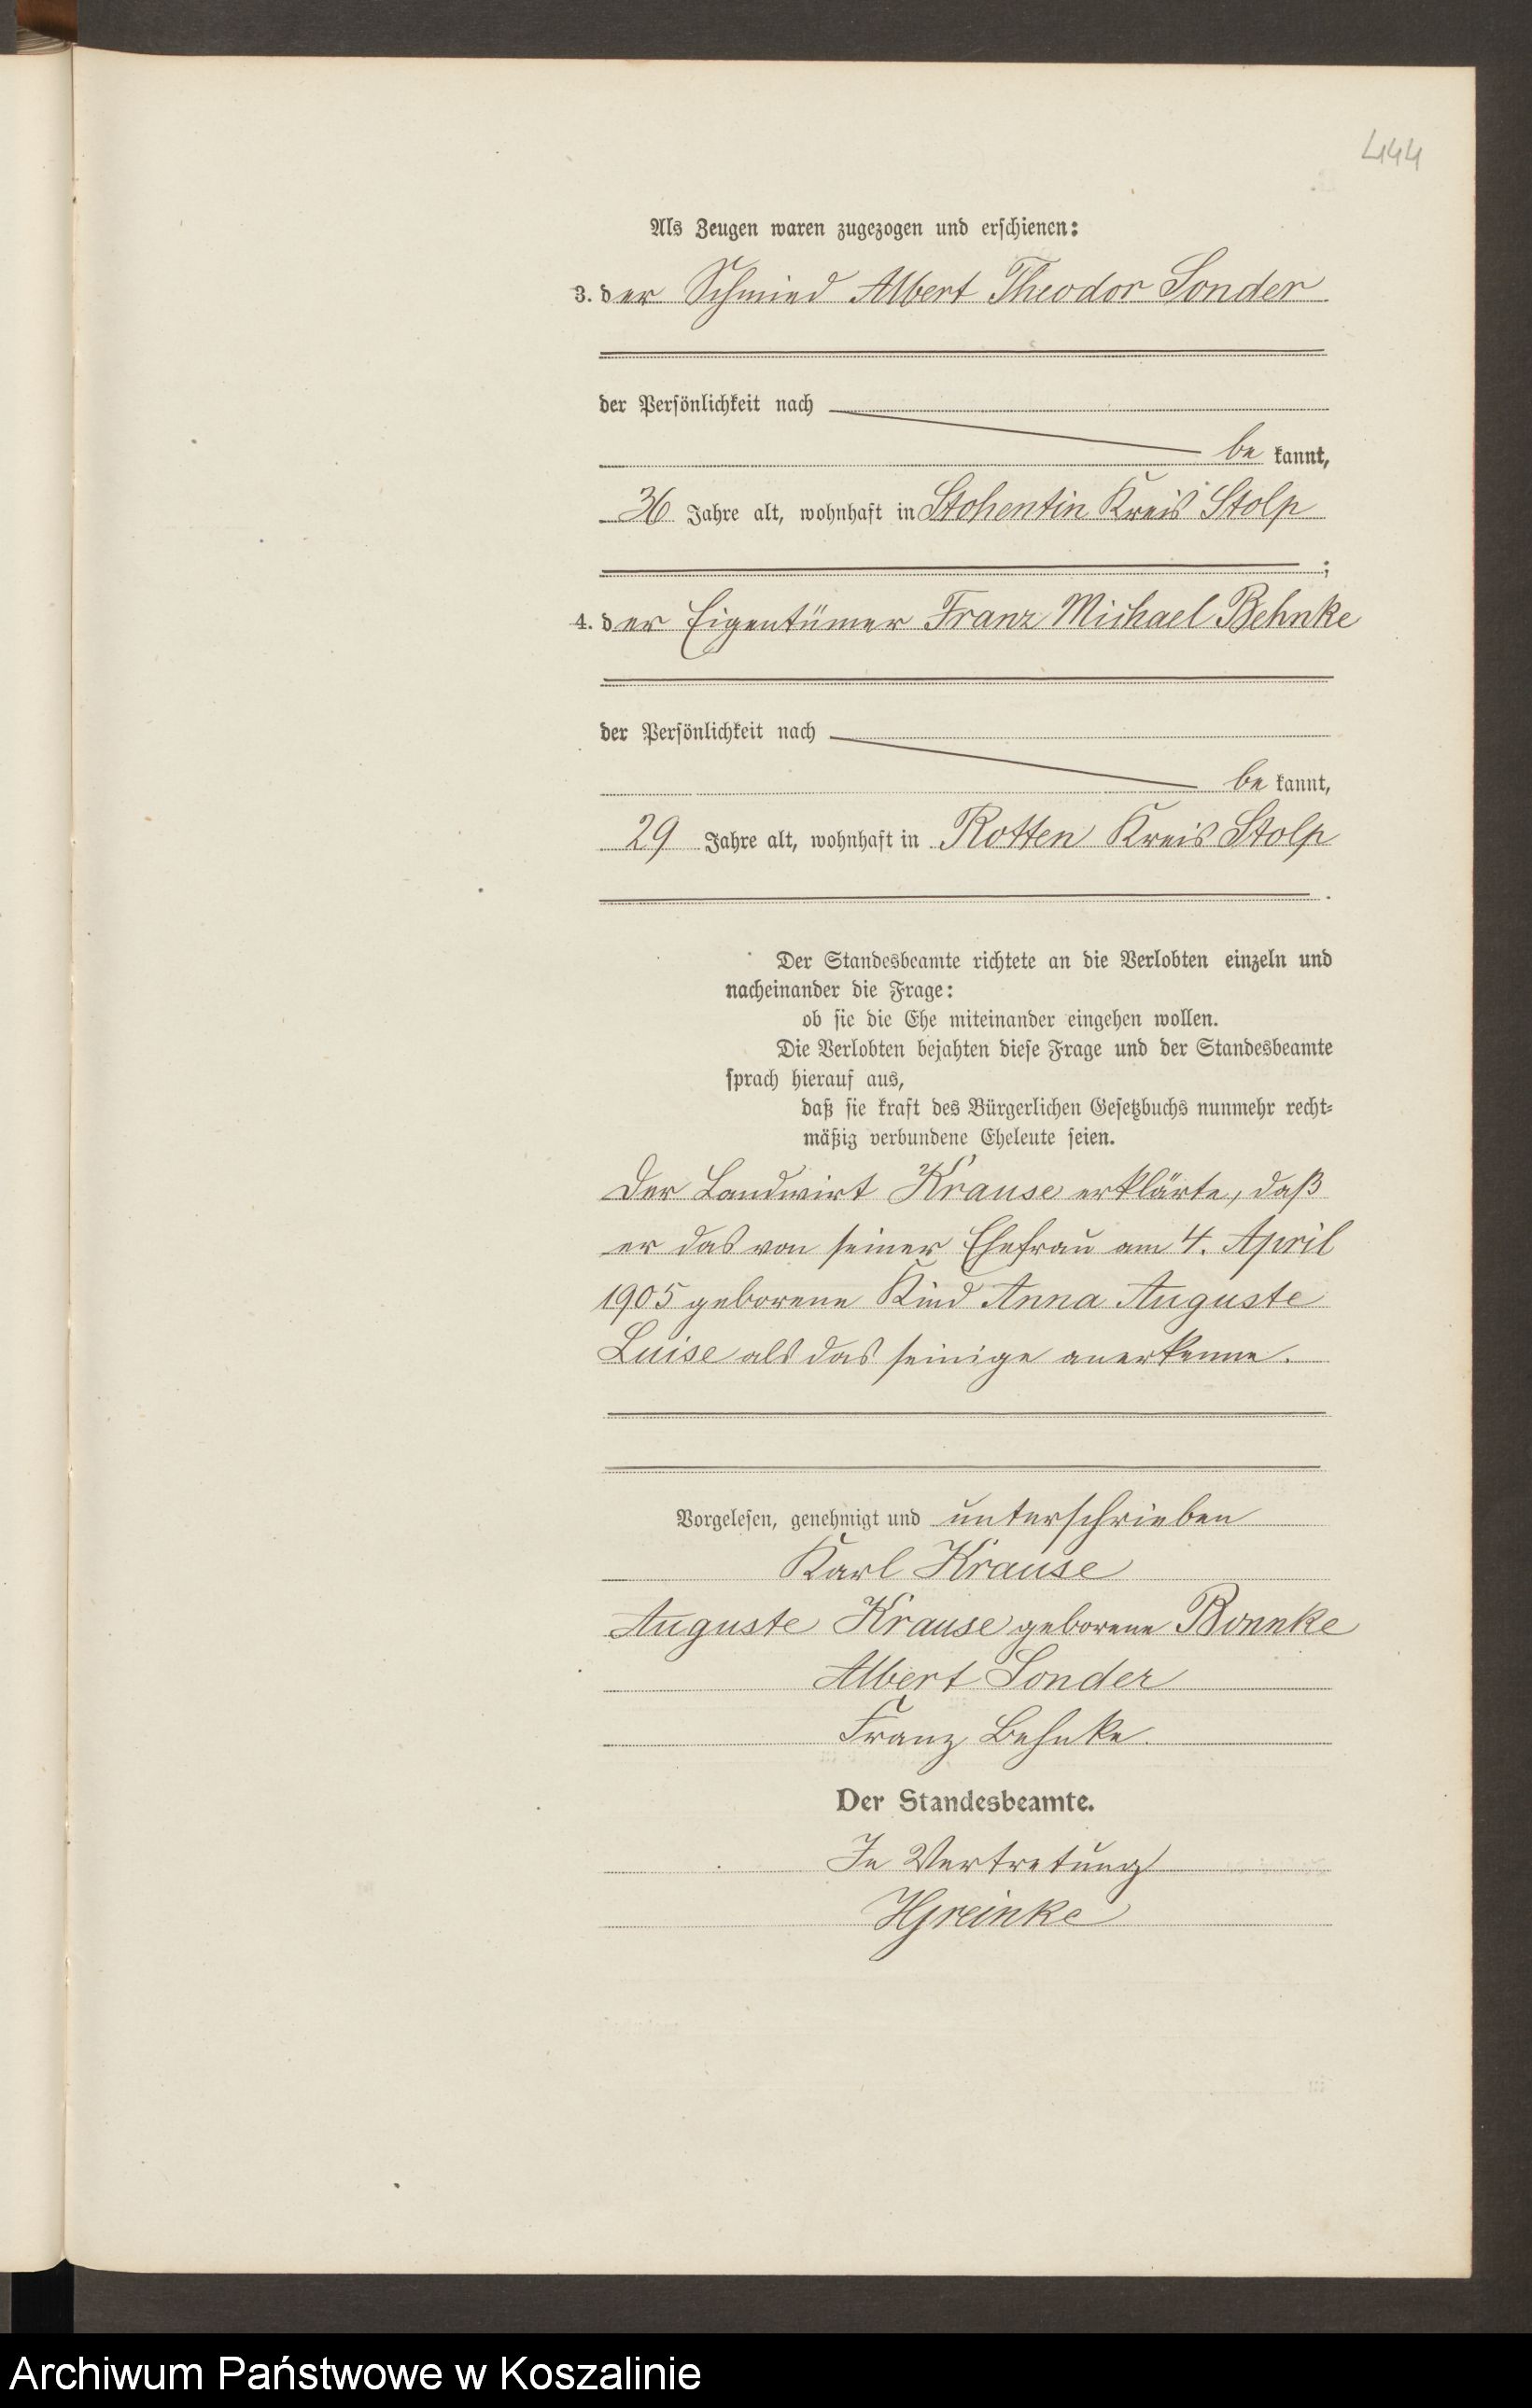 444
Als Zeugen waren zugezogen und erschienen:
3. der Schmied Albert Theodor Sonder
der Persönlichkeit nach
be kannt,
36 Jahre alt, wohnhaft in Stohentin Kreis Stolp
;
4. der Eigentümer Franz Michael Behnke
der Persönlichkeit nach
be kannt,
29 Jahre alt, wohnhaft in Rotten Kreis Stolp
.
Der Standesbeamte richtete an die Verlobten einzeln und
nacheinander die Frage:
ob sie die Ehe miteinander eingehen wollen.
Die Verlobten bejahten diese Frage und der Standesbeamte
sprach hierauf aus,
daß sie kraft des Bürgerlichen Gesetzbuchs nunmehr recht-
mäßig verbundene Eheleute seien.
Der Landwirt Krause erklärte, daß
er das von seiner Ehefrau am 4. April
1905 geborene Kind Anna Auguste
Luise als das seinige anerkenne.
Vorgelesen, genehmigt und unterschrieben
Karl Krause
Auguste Krause geborene Bonnke
Albert Sonder
Franz Behnke.
Der Standesbeamte.
In Vertretung
HGreinke
Archiwum Państwowe w Koszalinie